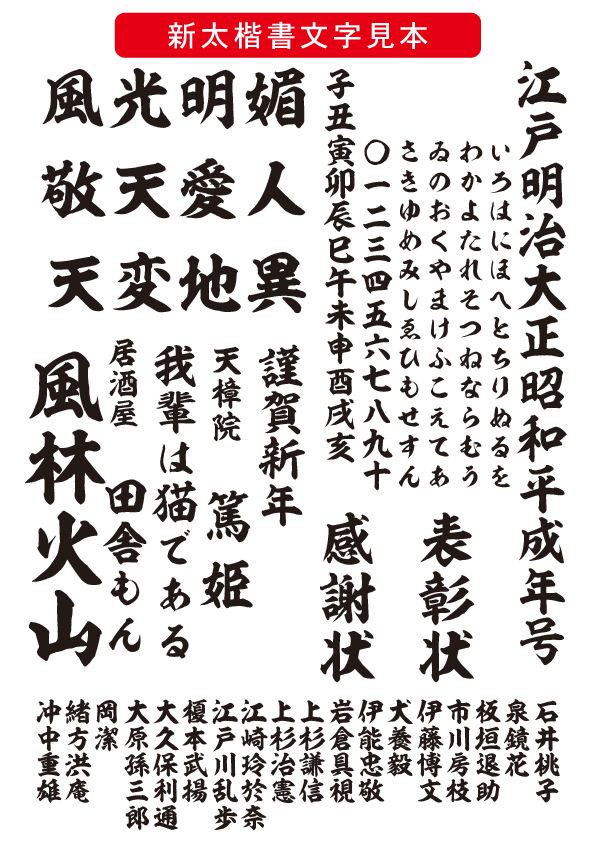 新太楷書文字見本
江戸明治大正昭和平成年号
いろはにほへとちりぬるを
わかよたれそつねならむう
ゐのおくやまけふこえてあ
さきゆめみしゑひもせすん
〇一二三四五六七八九十
子丑寅卯辰巳午未申酉戌亥
表彰状
感謝状
媚人異
明愛地
光天変
風敬天
謹賀新年
天樟院 篤姫
我輩は猫である
居酒屋 田舎もん
風林火山
石井桃子
泉鏡花
板垣退助
市川房枝
伊藤博文
犬養毅
伊能忠敬
岩倉具視
上杉謙信
上杉治憲
江崎玲於奈
江戸川乱歩
榎本武揚
大久保利通
大原孫三郎
岡潔
緒方洪庵
沖中重雄